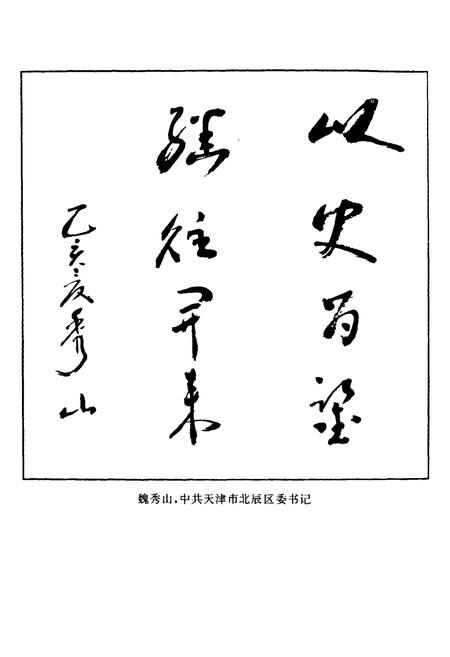 以史为鉴
继往开来
乙亥夏秀山
魏秀山,中共天津市北辰区委书记